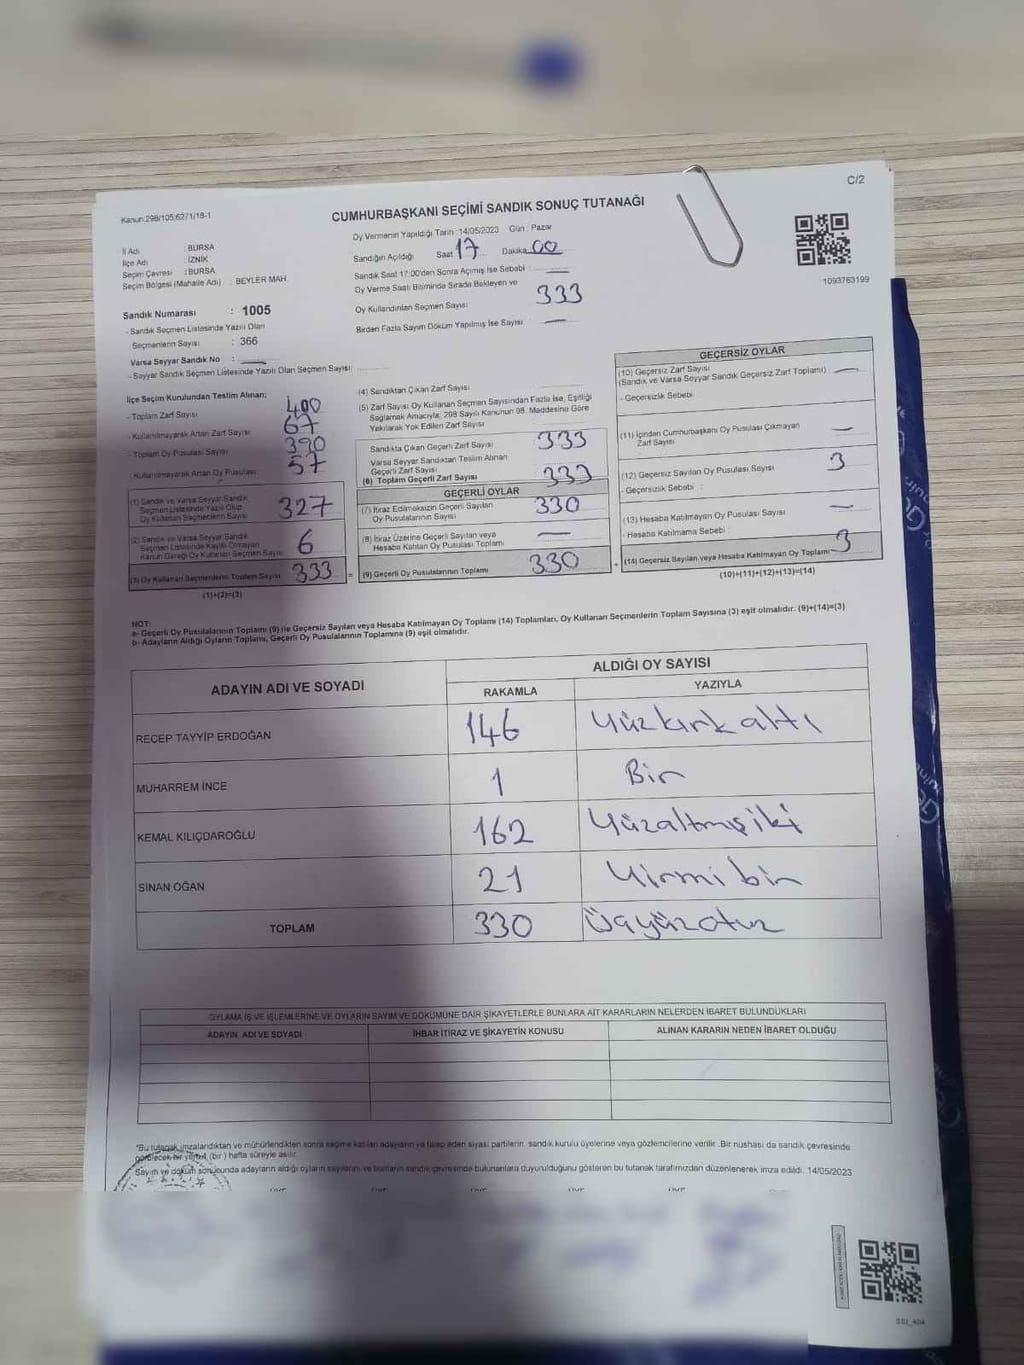 C/2
Kanun:298/105;6271/18-1
CUMHURBAŞKANI SEÇİMİ SANDIK SONUÇ TUTANAĞI
İl Adı : BURSA
İlçe Adı : İZNİK
Seçim Çevresi : BURSA
Seçim Bölgesi (Mahalle Adı) : BEYLER MAH.
Sandık Numarası : 1005
- Sandık Seçmen Listesinde Yazılı Olan
Seçmenlerin Sayısı : 366
Varsa Seyyar Sandık No : —
- Seyyar Sandık Seçmen Listesinde Yazılı Olan Seçmen Sayısı:
Oy Vermenin Yapıldığı Tarih :14/05/2023 Gün : Pazar
Sandığın Açıldığı Saat 17 Dakika 00
Sandık Saat 17:00'den Sonra Açılmış İse Sebebi : —
Oy Verme Saati Bitiminde Sırada Bekleyen ve
Oy Kullandırılan Seçmen Sayısı 333
Birden Fazla Sayım Döküm Yapılmış İse Sayısı —
1093763199
İlçe Seçim Kurulundan Teslim Alınan;
- Toplam Zarf Sayısı 400
- Kullanılmayarak Artan Zarf Sayısı 67
- Toplam Oy Pusulası Sayısı 390
- Kullanılmayarak Artan Oy Pusulası 57
(1) Sandık ve Varsa Seyyar Sandık
Seçmen Listesinde Yazılı Olup
Oy Kullanan Seçmenlerin Sayısı 327
(2) Sandık ve Varsa Seyyar Sandık
Seçmen Listesinde Kayıtlı Olmayan
Kanun Gereği Oy Kullanan Seçmen Sayısı 6
(3) Oy Kullanan Seçmenlerin Toplam Sayısı 333 =
(1)+(2)=(3)
(4) Sandıktan Çıkan Zarf Sayısı
(5) Zarf Sayısı Oy Kullanan Seçmen Sayısından Fazla İse, Eşitliği
Sağlamak Amacıyla, 298 Sayılı Kanunun 98. Maddesine Göre
Yakılarak Yok Edilen Zarf Sayısı
Sandıkta Çıkan Geçerli Zarf Sayısı 333
Varsa Seyyar Sandıktan Teslim Alınan
Geçerli Zarf Sayısı
(6) Toplam Geçerli Zarf Sayısı 333
GEÇERLİ OYLAR
(7) İtiraz Edilmeksizin Geçerli Sayılan
Oy Pusulalarının Sayısı 330
(8) İtiraz Üzerine Geçerli Sayılan veya
Hesaba Katılan Oy Pusulası Toplamı —
(9) Geçerli Oy Pusulalarının Toplamı 330 +
GEÇERSİZ OYLAR
(10) Geçersiz Zarf Sayısı
(Sandık ve Varsa Seyyar Sandık Geçersiz Zarf Toplamı) : —
- Geçersizlik Sebebi
(11) İçinden Cumhurbaşkanı Oy Pusulası Çıkmayan
Zarf Sayısı —
(12) Geçersiz Sayılan Oy Pusulası Sayısı 3
- Geçersizlik Sebebi :
(13) Hesaba Katılmayan Oy Pusulası Sayısı —
- Hesaba Katılmama Sebebi :
(14) Geçersiz Sayılan veya Hesaba Katılmayan Oy Toplamı 3
(10)+(11)+(12)+(13)=(14)
NOT:
a- Geçerli Oy Pusulalarının Toplamı (9) ile Geçersiz Sayılan veya Hesaba Katılmayan Oy Toplamı (14) Toplamları, Oy Kullanan Seçmenlerin Toplam Sayısına (3) eşit olmalıdır. (9)+(14)=(3)
b- Adayların Aldığı Oyların Toplamı, Geçerli Oy Pusulalarının Toplamına (9) eşit olmalıdır.
ADAYIN ADI VE SOYADI ALDIĞI OY SAYISI
RAKAMLA YAZIYLA
RECEP TAYYİP ERDOĞAN 146 Yüzkırkaltı
MUHARREM İNCE 1 Bir
KEMAL KILIÇDAROĞLU 162 Yüzaltmışiki
SİNAN OĞAN 21 Yirmibir
TOPLAM 330 Üçyüzotuz
OYLAMA İŞ VE İŞLEMLERİNE VE OYLARIN SAYIM VE DÖKÜMÜNE DAİR ŞİKAYETLERLE BUNLARA AİT KARARLARIN NELERDEN İBARET BULUNDUKLARI
ADAYIN ADI VE SOYADI İHBAR İTİRAZ VE ŞİKAYETİN KONUSU ALINAN KARARIN NEDEN İBARET OLDUĞU
*Bu tutanak imzalandıktan ve mühürlendikten sonra seçime katılan adayların ve talep eden siyasi partilerin, sandık kurulu üyelerine veya gözlemcilerine verilir. Bir nüshası da sandık çevresinde
görülecek bir yere 1 (bir) hafta süreyle asılır.
Sayım ve döküm sonucunda adayların aldığı oyların sayılarını ve bunların sandık çevresinde bulunanlara duyurulduğunu gösteren bu tutanak tarafımızdan düzenlenerek imza edildi. 14/05/2023